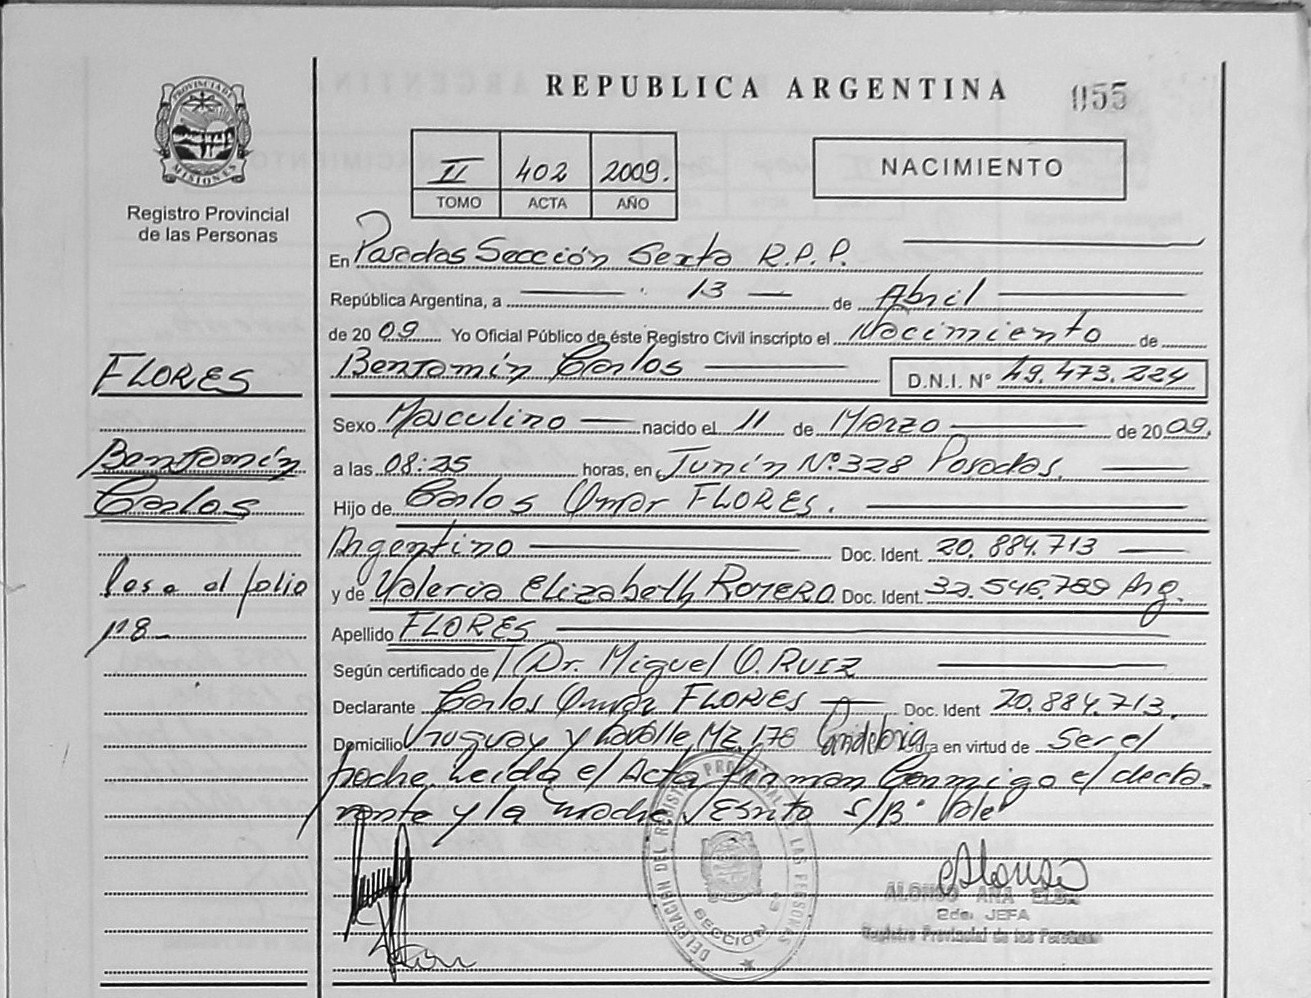 REPUBLICA ARGENTINA
055
PROVINCIA DE MISIONES
Registro Provincial
de las Personas
II 402 2009.
TOMO ACTA AÑO
NACIMIENTO
En Posadas Sección Sexta R.P.P.
República Argentina, a 13 de Abril
de 2009 Yo Oficial Público de éste Registro Civil inscripto el Nacimiento de
Benjamín Carlos D.N.I. Nº 49.473.224
Sexo Masculino nacido el 11 de Marzo de 2009.
a las 08:25 horas, en Junín Nº 328 Posadas.
Hijo de Carlos Omar FLORES.
Argentino Doc. Ident. 20.884.713
y de Valeria Elizabeth ROMERO Doc. Ident. 32.546.789 Arg.
Apellido FLORES
Según certificado de Dr. Miguel O. RUIZ
Declarante Carlos Omar FLORES Doc. Ident 20.884.713.
Domicilio Uruguay y Lavalle, MZ. 176 en virtud de Ser el
Padre. Leída el Acta firman Conmigo el decla-
rante y la madre. Escrito S/B: Vale
FLORES
Benjamín
Carlos
Pasa al folio
178-
DELEGACION DEL REGISTRO PROVINCIAL DE LAS PERSONAS
SECCION
Alonso
ALONSO ANA
2da. JEFA
Registro Provincial de las Personas